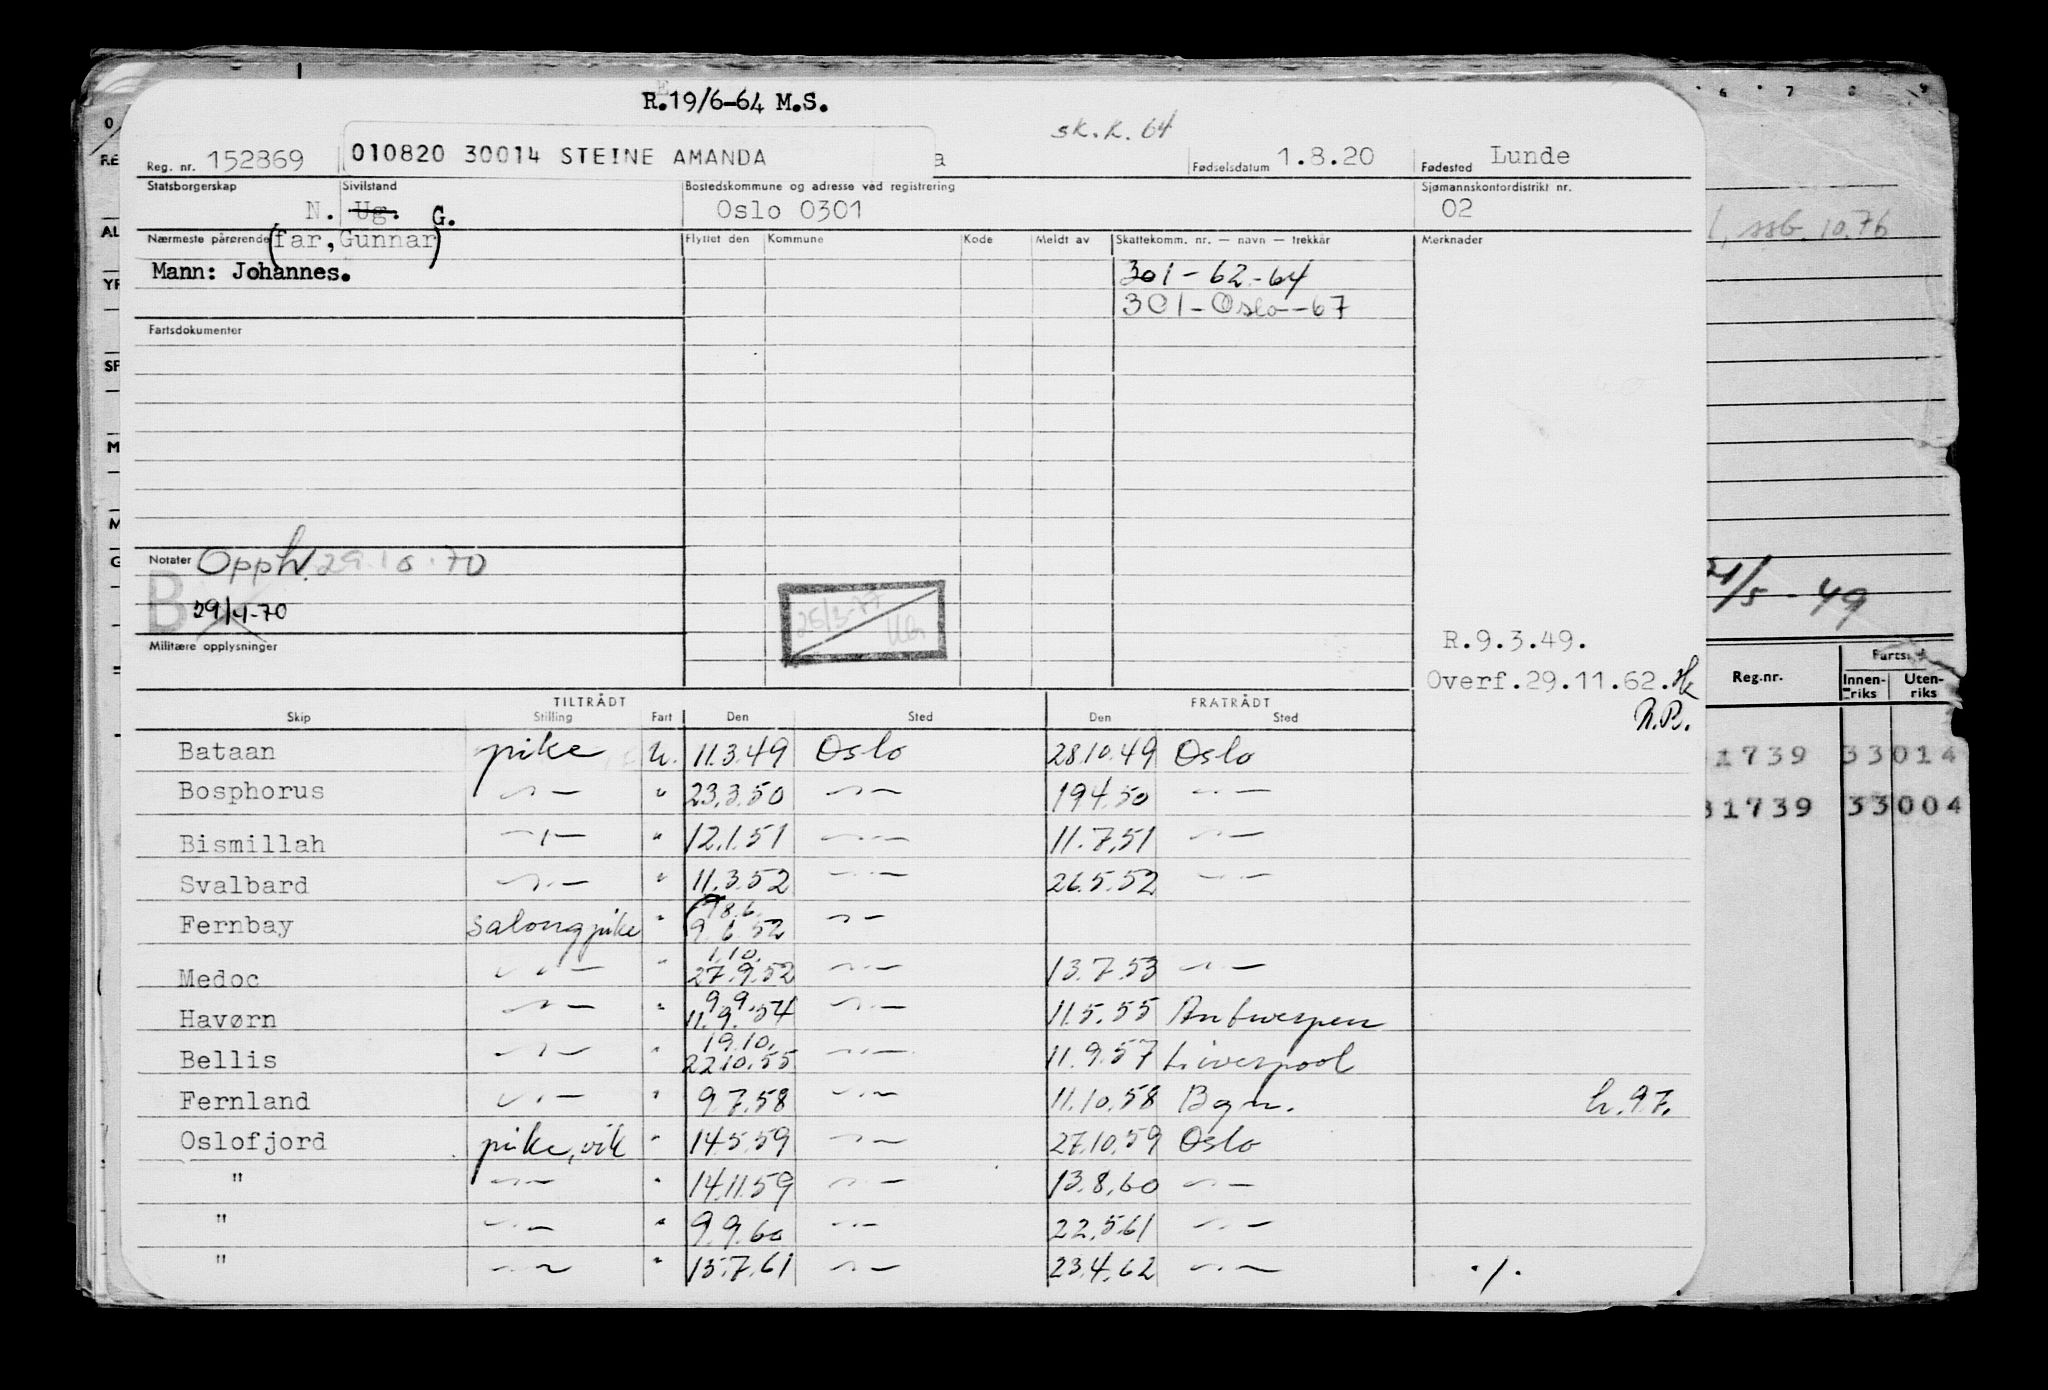 R.19/6-64 M.S.
sk.k. 64
Reg. nr. 152869 010820 30014 STEINE AMANDA a Fødselsdatum 1.8.20 Fødested Lunde
Statsborgerskap Sivilstand Bostedskommune og adresse ved registrering Sjømannskontordistrikt nr.
N. Ug. G. Oslo 0301 02
Nærmeste pårørende (far, Gunnar) Flyttet den Kommune Kode Meldt av Skattekomm. nr. — navn — trekkår Merknader
Mann: Johannes. 301-62-64
301-Oslo-67
Fartsdokumenter
Notater Opph. 29.10.70
B 29/4-70
25/3-77
Militære opplysninger
R.9.3.49.
Overf.29.11.62.
N.B.
TILTRÅDT FRATRÅDT
Skip Stilling Fart Den Sted Den Sted
Bataan pike u. 11.3.49 Oslo 28.10.49 Oslo
Bosphorus -"- " 23.3.50 -"- 19.4.50 -"-
Bismillah -"- " 12.1.51 -"- 11.7.51 -"-
Svalbard -"- " 11.3.52 -"- 26.5.52 -"-
Fernbay salongpike " 18.6. 9.6.52 -"-
Medoc -"- " 1.10. 27.9.52 -"- 13.7.53 -"-
Havørn -"- " 9.9. 11.9.54 -"- 11.5.55 Antwerpen
Bellis -"- " 19.10. 22.10.55 -"- 11.9.57 Liverpool
Fernland -"- " 9.7.58 -"- 11.10.58 Bgn. h.97.
Oslofjord pike, vik " 14.5.59 -"- 27.10.59 Oslo
" -"- " 14.11.59 -"- 13.8.60 -"-
" -"- " 9.9.60 -"- 22.5.61 -"-
" -"- " 15.7.61 -"- 23.4.62 -"- ./.
6 7 8 9
ssb. 10.76
21/5-49
Reg.nr. Innen-riks Uten-riks
1739 33014
31739 33004